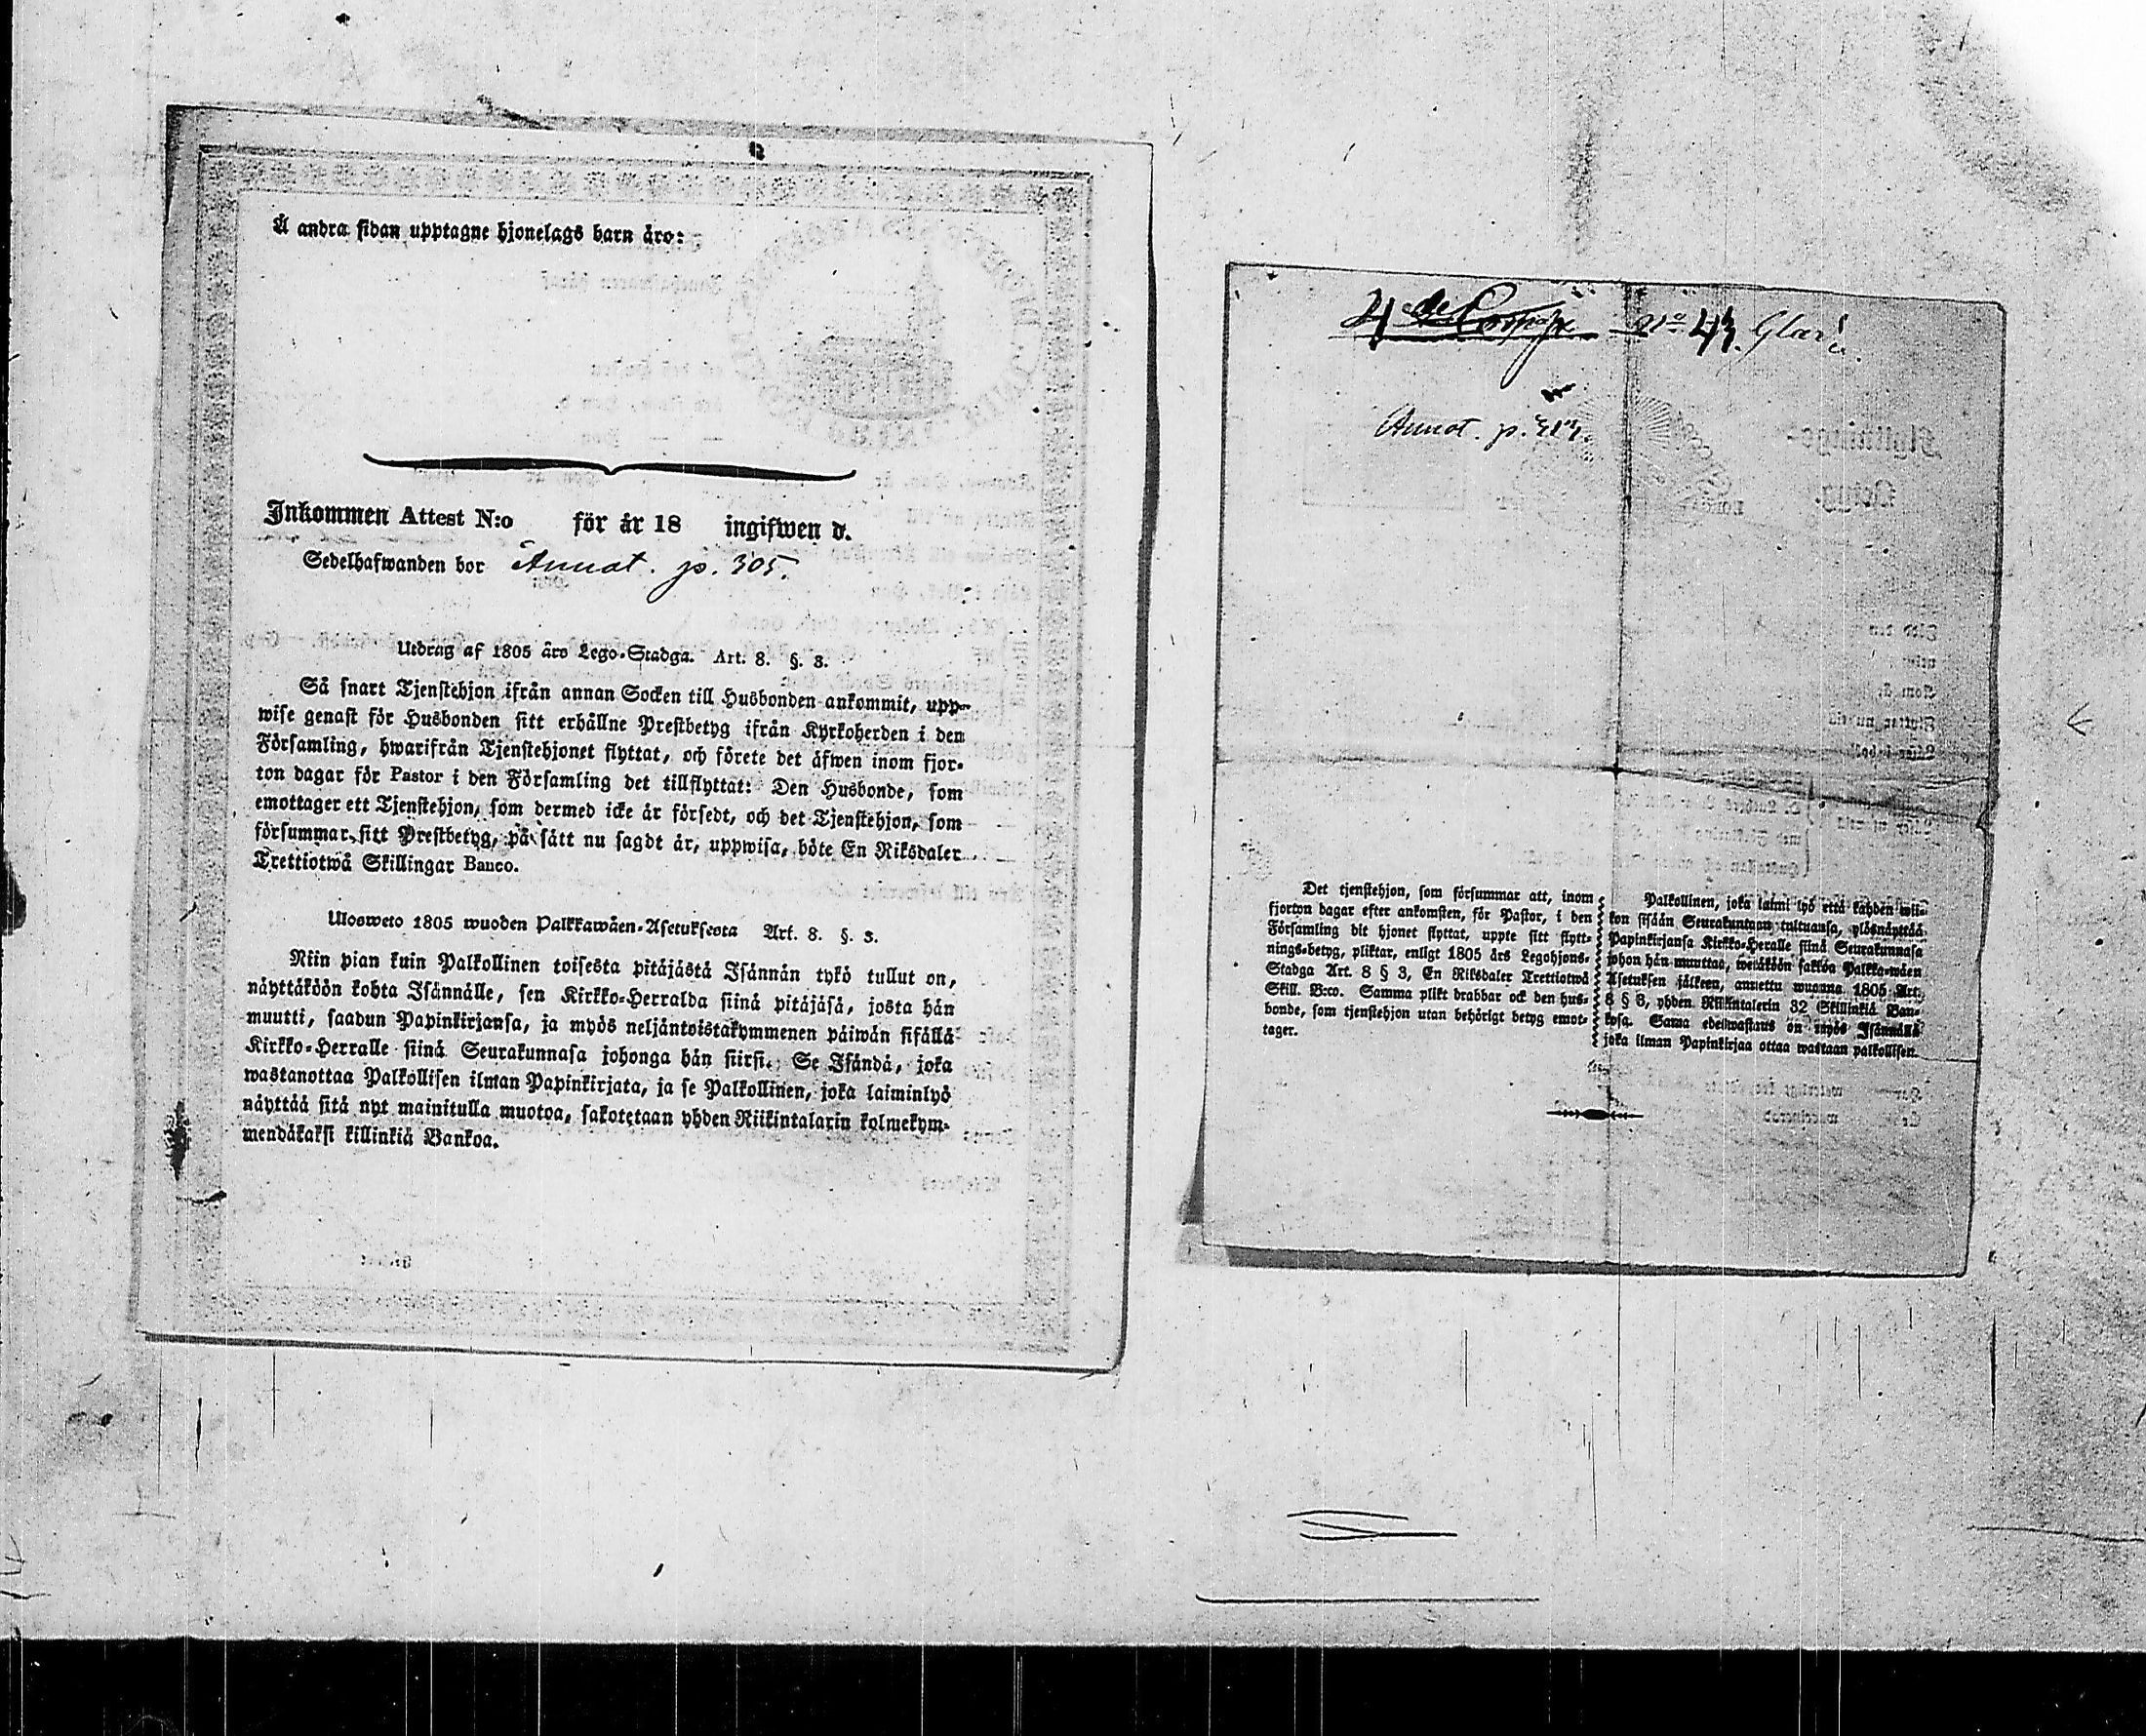 Å andra sidan upptagne hjonelags barn äro:
Inkommen Attest N:o för år 18 ingifwen d.
Sedelhafwanden bor Annot. p. 305.
Utdrag af 1805 års Lego-Stadga. Art. 8. §. 3.
Så snart Tjenstehjon ifrån annan Socken till Husbonden ankommit, upp-
wise genast för Husbonden sitt erhållne Prestbetyg ifrån Kyrkoherden i den
Församling, hwarifrån Tjenstehjonet flyttat, och förete det äfwen inom fjor-
ton dagar för Pastor i den Församling det tillflyttat: Den Husbonde, som
emottager ett Tjenstehjon, som dermed icke är försedt, och det Tjenstehjon, som
försummar sitt Prestbetyg, på sätt nu sagdt är, uppwisa, böte En Riksdaler
Trettiotwå Skillingar Banco.
Ulosweto 1805 wuoden Palkkawäen-Asetuksesta Art. 8. §. 3.
Niin pian kuin Palkollinen toisesta pitäjästä Isännän tykö tullut on,
näyttäköön kohta Isännälle, sen Kirkko-Herralda siinä pitäjäsä, josta hän
muutti, saadun Papinkirjansa, ja myös neljäntoistakymmenen päiwän sisällä
Kirkko-Herralle siinä Seurakunnasa johonga hän siirsi. Se Isändä, joka
wastanottaa Palkollisen ilman Papinkirjata, ja se Palkollinen, joka laiminlyö
näyttää sitä nyt mainitulla muotoa, sakotetaan yhden Riikintalarin kolmekym-
mendäkaksi killinkiä Bankoa.
4 de Comp N:o 43.
Annot. p. 313.
Det tjenstehjon, som försummar att, inom
fjorton dagar efter ankomsten, för Pastor, i den
Församling dit hjonet flyttat, uppte sitt flytt-
nings-betyg, pliktar, enligt 1805 års Legohjons-
Stadga Art. 8 § 3, En Riksdaler Trettiotwå
Skill. B:co. Samma plikt drabbar ock den hus-
bonde, som tjenstehjon utan behörigt betyg emot-
tager.
Palkollinen, joka laimi lyö että kahden wii-
kon sisään Seurakuntaan tultuansa, ylösnäyttää
Papinkirjansa Kirkko-Heralle siinä Seurakunnasa
johon hän muuttaa, wetäköön sakkoa Palkka-wäen
Asetuksen jälkeen, annettu wuonna 1805 Art.
8 § 3, yhden Riikintalerin 32 Skillinkiä Ban-
kosa. Sama edeswastaus on myös Isännällä
joka ilman Papinkirjaa ottaa wastaan palkollisen.